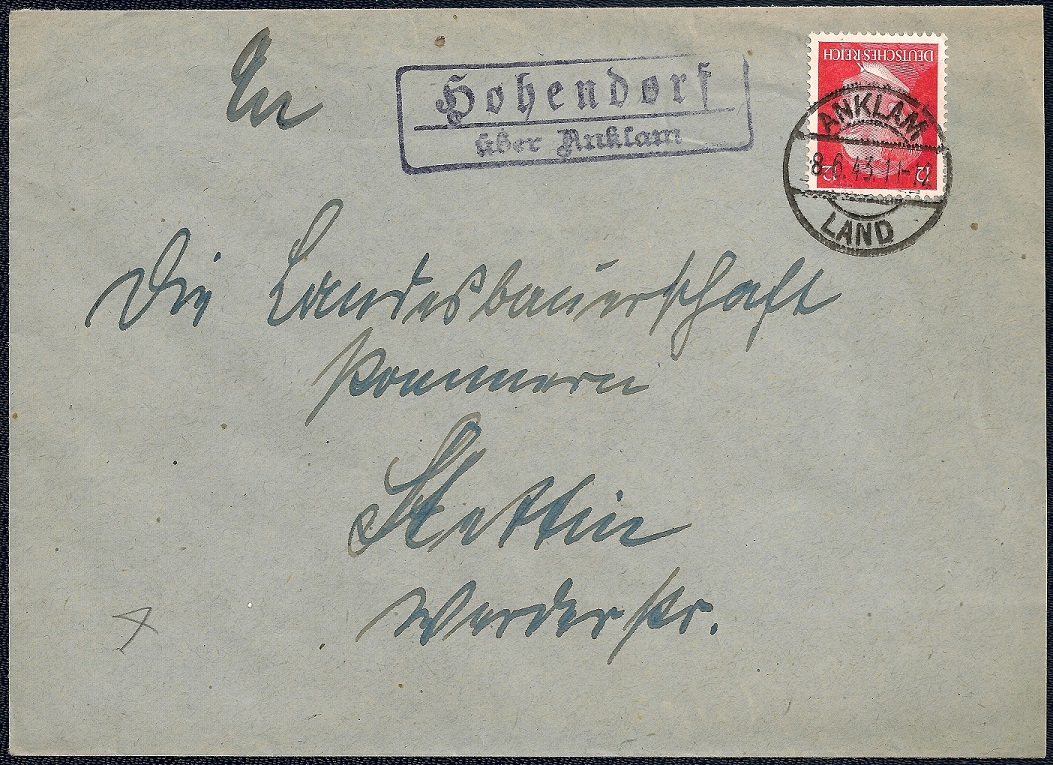 An
Hohendorf
über Anklam
DEUTSCHES REICH
12 12
ANKLAM
8.6.43.11-12
LAND
Die Landesbauerschaft
Pommern
Stettin
Werderstr.